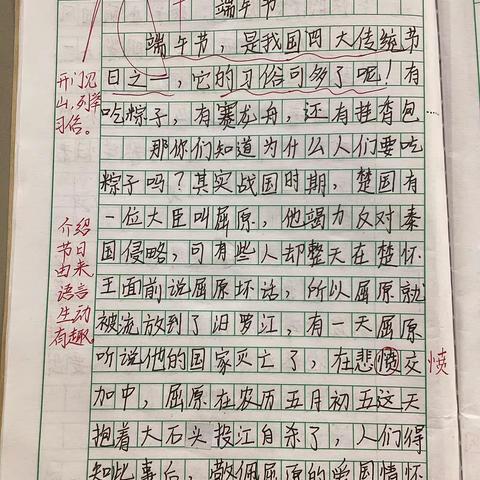 端午节
端午节，是我国四大传统节
日之一，它的习俗可多了呢！有
吃粽子，有赛龙舟，还有挂香包
那你们知道为什么人们要吃
粽子吗？其实战国时期，楚国有
一位大臣叫屈原，他竭力反对秦
国侵略，可有些人却整天在楚怀
王面前说屈原坏话，所以屈原就
被流放到了汨罗江，有一天屈原
听说他的国家灭亡了，在悲愤交
加中，屈原在农历五月初五这天
抱着大石头投江自杀了，人们得
知此事后，敬佩屈原的爱国情怀
开门见
山，列举
习俗。
介绍
节日
由来
语言
生动
有趣
愤